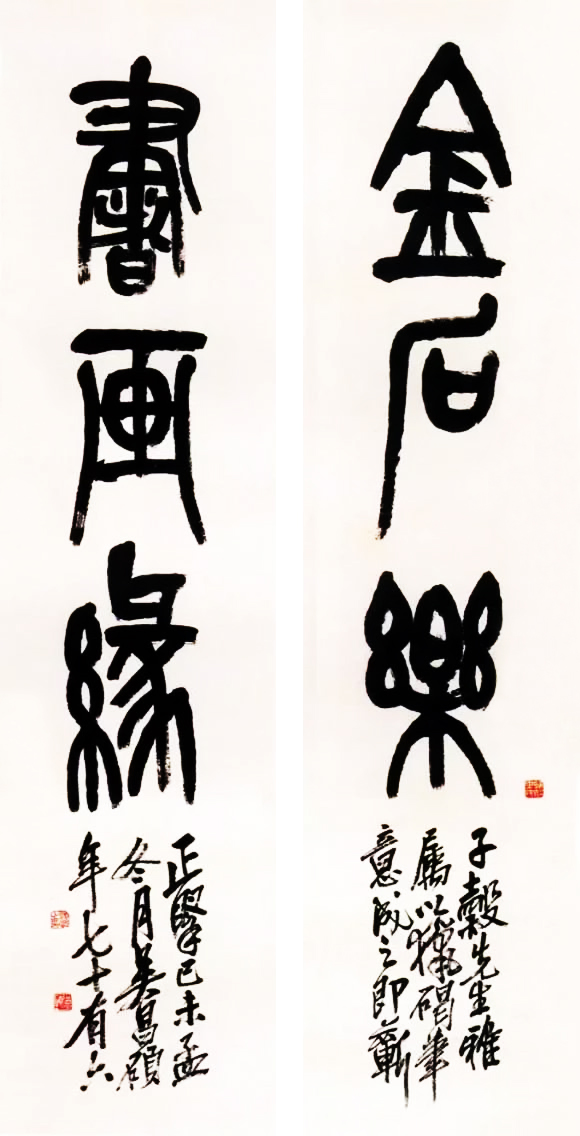 金石樂
書画緣
子縠先生雅
屬以獵碣筆
意成之即蘄
正擘己未孟
冬月吳昌碩
年七十有六